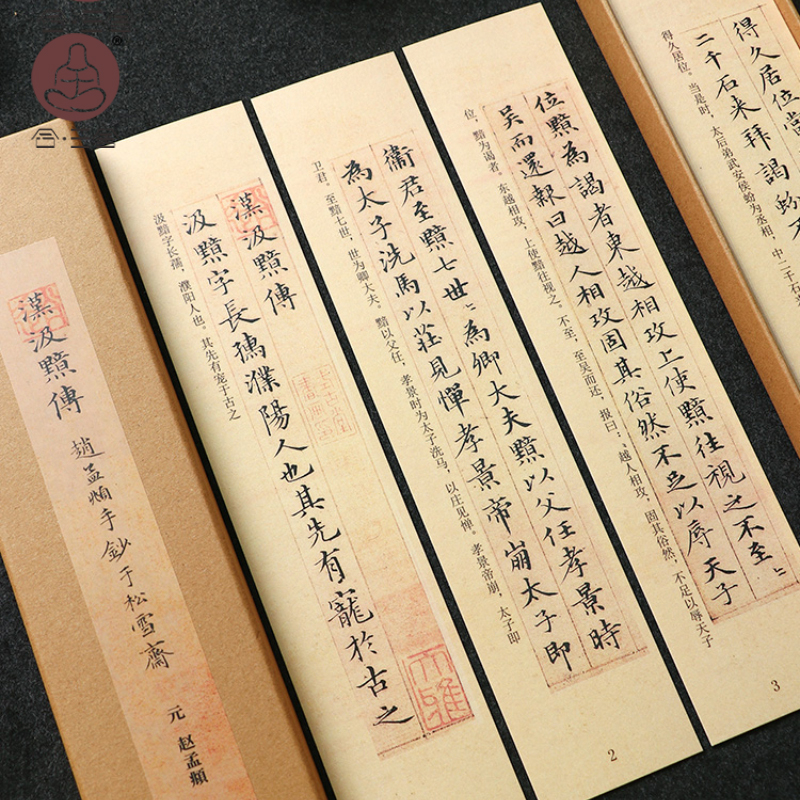 漢汲黯傳
趙孟頫手鈔于松雪齋
元 赵孟頫
漢汲黯傳
汲黯字長孺濮陽人也其先有寵於古之
汲黯字长孺，濮阳人也。其先有宠于古之
衞君至黯七世〻為卿大夫黯以父任孝景時
為太子洗馬以莊見憚孝景帝崩太子即
卫君。至黯七世，世为卿大夫。黯以父任，孝景时为太子洗马，以庄见惮。孝景帝崩，太子即
2
位黯為謁者東越相攻上使黯往視之不至〻
吳而還報曰越人相攻固其俗然不足以辱天子
位，黯为谒者。东越相攻，上使黯往视之。不至，至吴而还，报曰：“越人相攻，固其俗然，不足以辱天子
3
得久居位當
二千石来拜謁蚡不
得久居位。当是时，太后弟武安侯蚡为丞相，中二千石